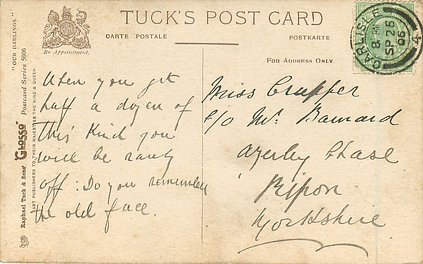 TUCK'S POST CARD
CARTE POSTALE
POSTKARTE
By Appointment.
FOR ADDRESS ONLY
CARLISLE
SP 25
06
4
"OUR DARLINGS."
Raphael Tuck & Sons' "Glosso" Postcard Series 5606
ART PUBLISHERS TO THEIR MAJESTIES THE KING & QUEEN.
When you get
half a dozen of
this kind you
will be
off. Do you remember
the old face.
Miss Crapper
c/o Mr. Barnard
Azerley Chase
Ripon
Yorkshire